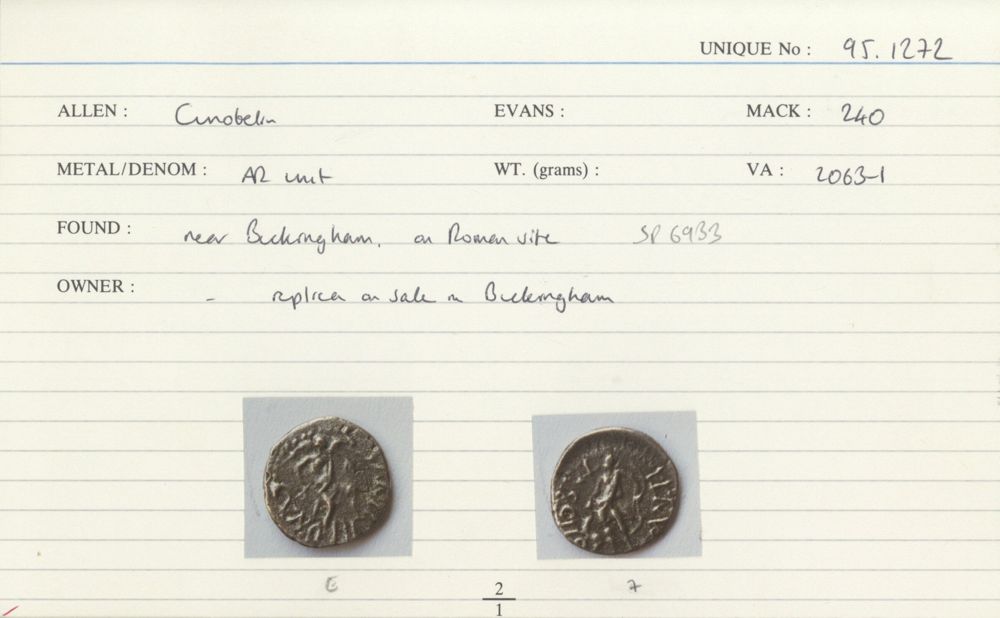 UNIQUE No : 95.1272
ALLEN : Cunobelin EVANS : MACK : 240
METAL/DENOM : AR unit WT. (grams) : VA : 2063-1
FOUND : near Buckingham, on Roman site SP 6933
OWNER : - replica on sale in Buckingham
E 7
2
1